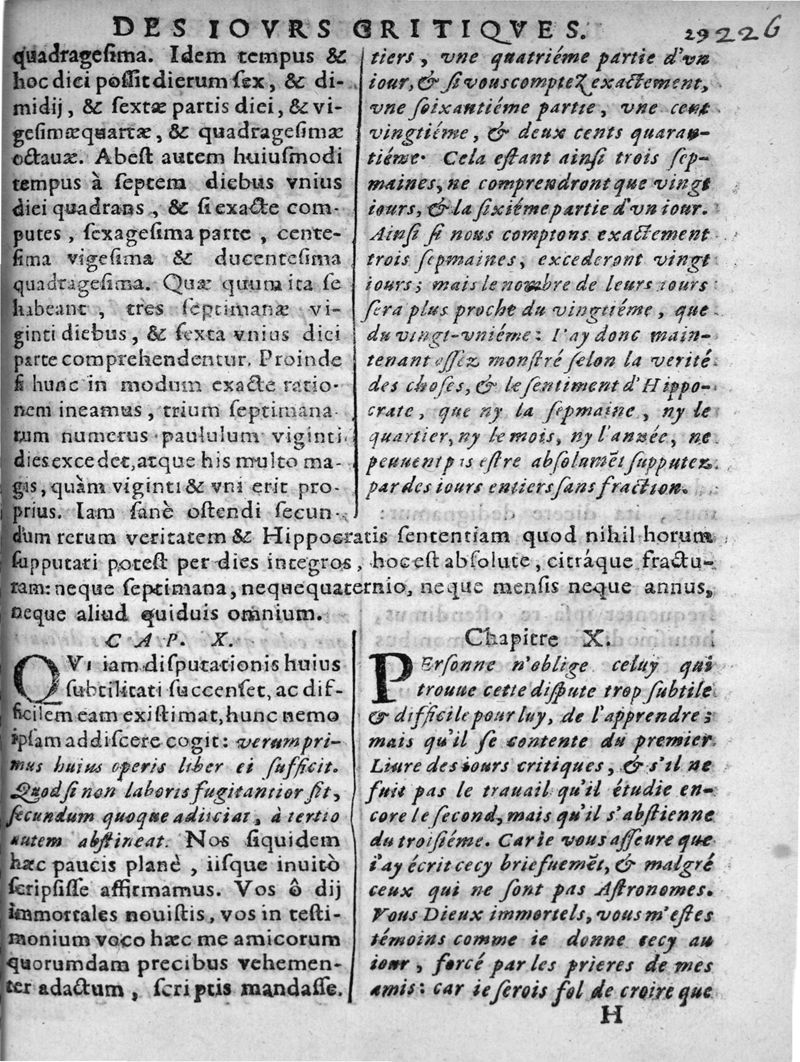 DES IOVRS CRITIQVES. 29226
quadragesima. Idem tempus &
hoc dici possit dierum sex, & di-
midij, & sextæ partis diei, & vi-
gesimæquartæ, & quadragesimæ
octauæ. Abest autem huiusmodi
tempus à septem diebus vnius
diei quadrans, & si exacte com-
putes, sexagesima parte, cente-
sima vigesima & ducentesima
quadragesima. Quæ quum ita se
habeant, tres septimanæ vi-
ginti diebus, & sexta vnius diei
parte comprehendentur. Proinde
si hunc in modum exacte ratio-
nem ineamus, trium septimana
rum numerus paululum viginti
dies excedet, atque his multo ma-
gis, quàm viginti & vni erit pro-
prius. Iam sanè ostendi secun-
tiers, vne quatriéme partie d'vn
iour, & si vous comptez exactement,
vne soixantiéme partie, vne cent
vingtiéme, & deux cents quaran-
tiéme. Cela estant ainsi trois sep-
maines, ne comprendront que vingt
iours, & la sixiéme partie d'vn iour.
Ainsi si nous comptons exactement
trois sepmaines, excederont vingt
iours; mais le nombre de leurs iours
sera plus proche du vingtiéme, que
du vingt-vniéme: I'ay donc main-
tenant assez monstré selon la verité
des choses, & le sentiment d'Hippo-
crate, que ny la sepmaine, ny le
quartier, ny le mois, ny l'année, ne
peuuent pas estre absolumẽt supputez
par des iours entiers sans fraction.
dum rerum veritatem & Hippocratis sententiam quod nihil horum
supputari potest per dies integros, hoc est absolute, citráque fractu-
ram: neque septimana, nequequaternio, neque mensis neque annus,
neque aliud quiduis omnium.
CAP. X.
QVi iam disputationis huius
subtilitati succenset, ac dif-
ficilem eam existimat, hunc nemo
ipsam addiscere cogit: verum pri-
mus huius operis liber ei sufficit.
Quod si non laboris fugitantior sit,
secundum quoque adiiciat, à tertio
autem abstineat. Nos siquidem
hæc paucis planè, iisque inuitò
scripsisse affirmamus. Vos ô dij
immortales nouistis, vos in testi-
monium voco hæc me amicorum
quorumdam precibus vehemen-
ter adactum, scriptis mandasse.
Chapitre X.
PErsonne n'oblige celuy qui
trouue cette dispute trop subtile
& difficile pour luy, de l'apprendre;
mais qu'il se contente du premier
Liure des iours critiques, & s'il ne
fuit pas le trauail qu'il étudie en-
core le second, mais qu'il s'abstienne
du troisiéme. Car ie vous asseure que
i'ay écrit cecy briefuemẽt, & malgré
ceux qui ne sont pas Astronomes.
Vous Dieux immortels, vous m'estes
témoins comme ie donne cecy au
iour, forcé par les prieres de mes
amis: car ie serois fol de croire que
H